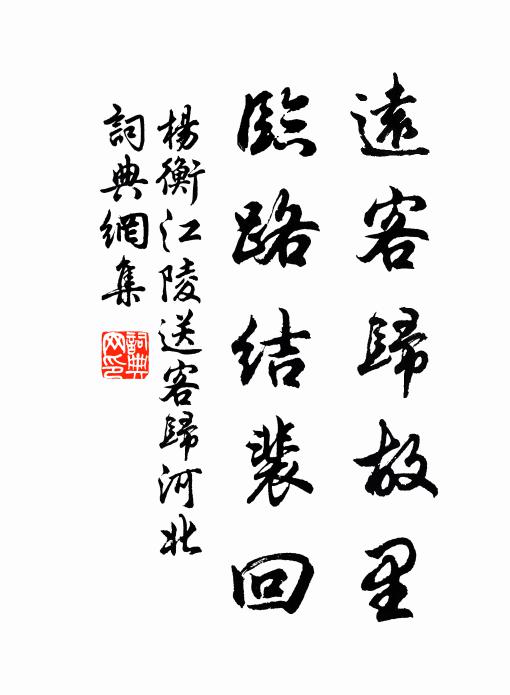 遠客歸故里
臨路結裴回
楊衡江陵送客歸河北
詞典網集
詞典网印